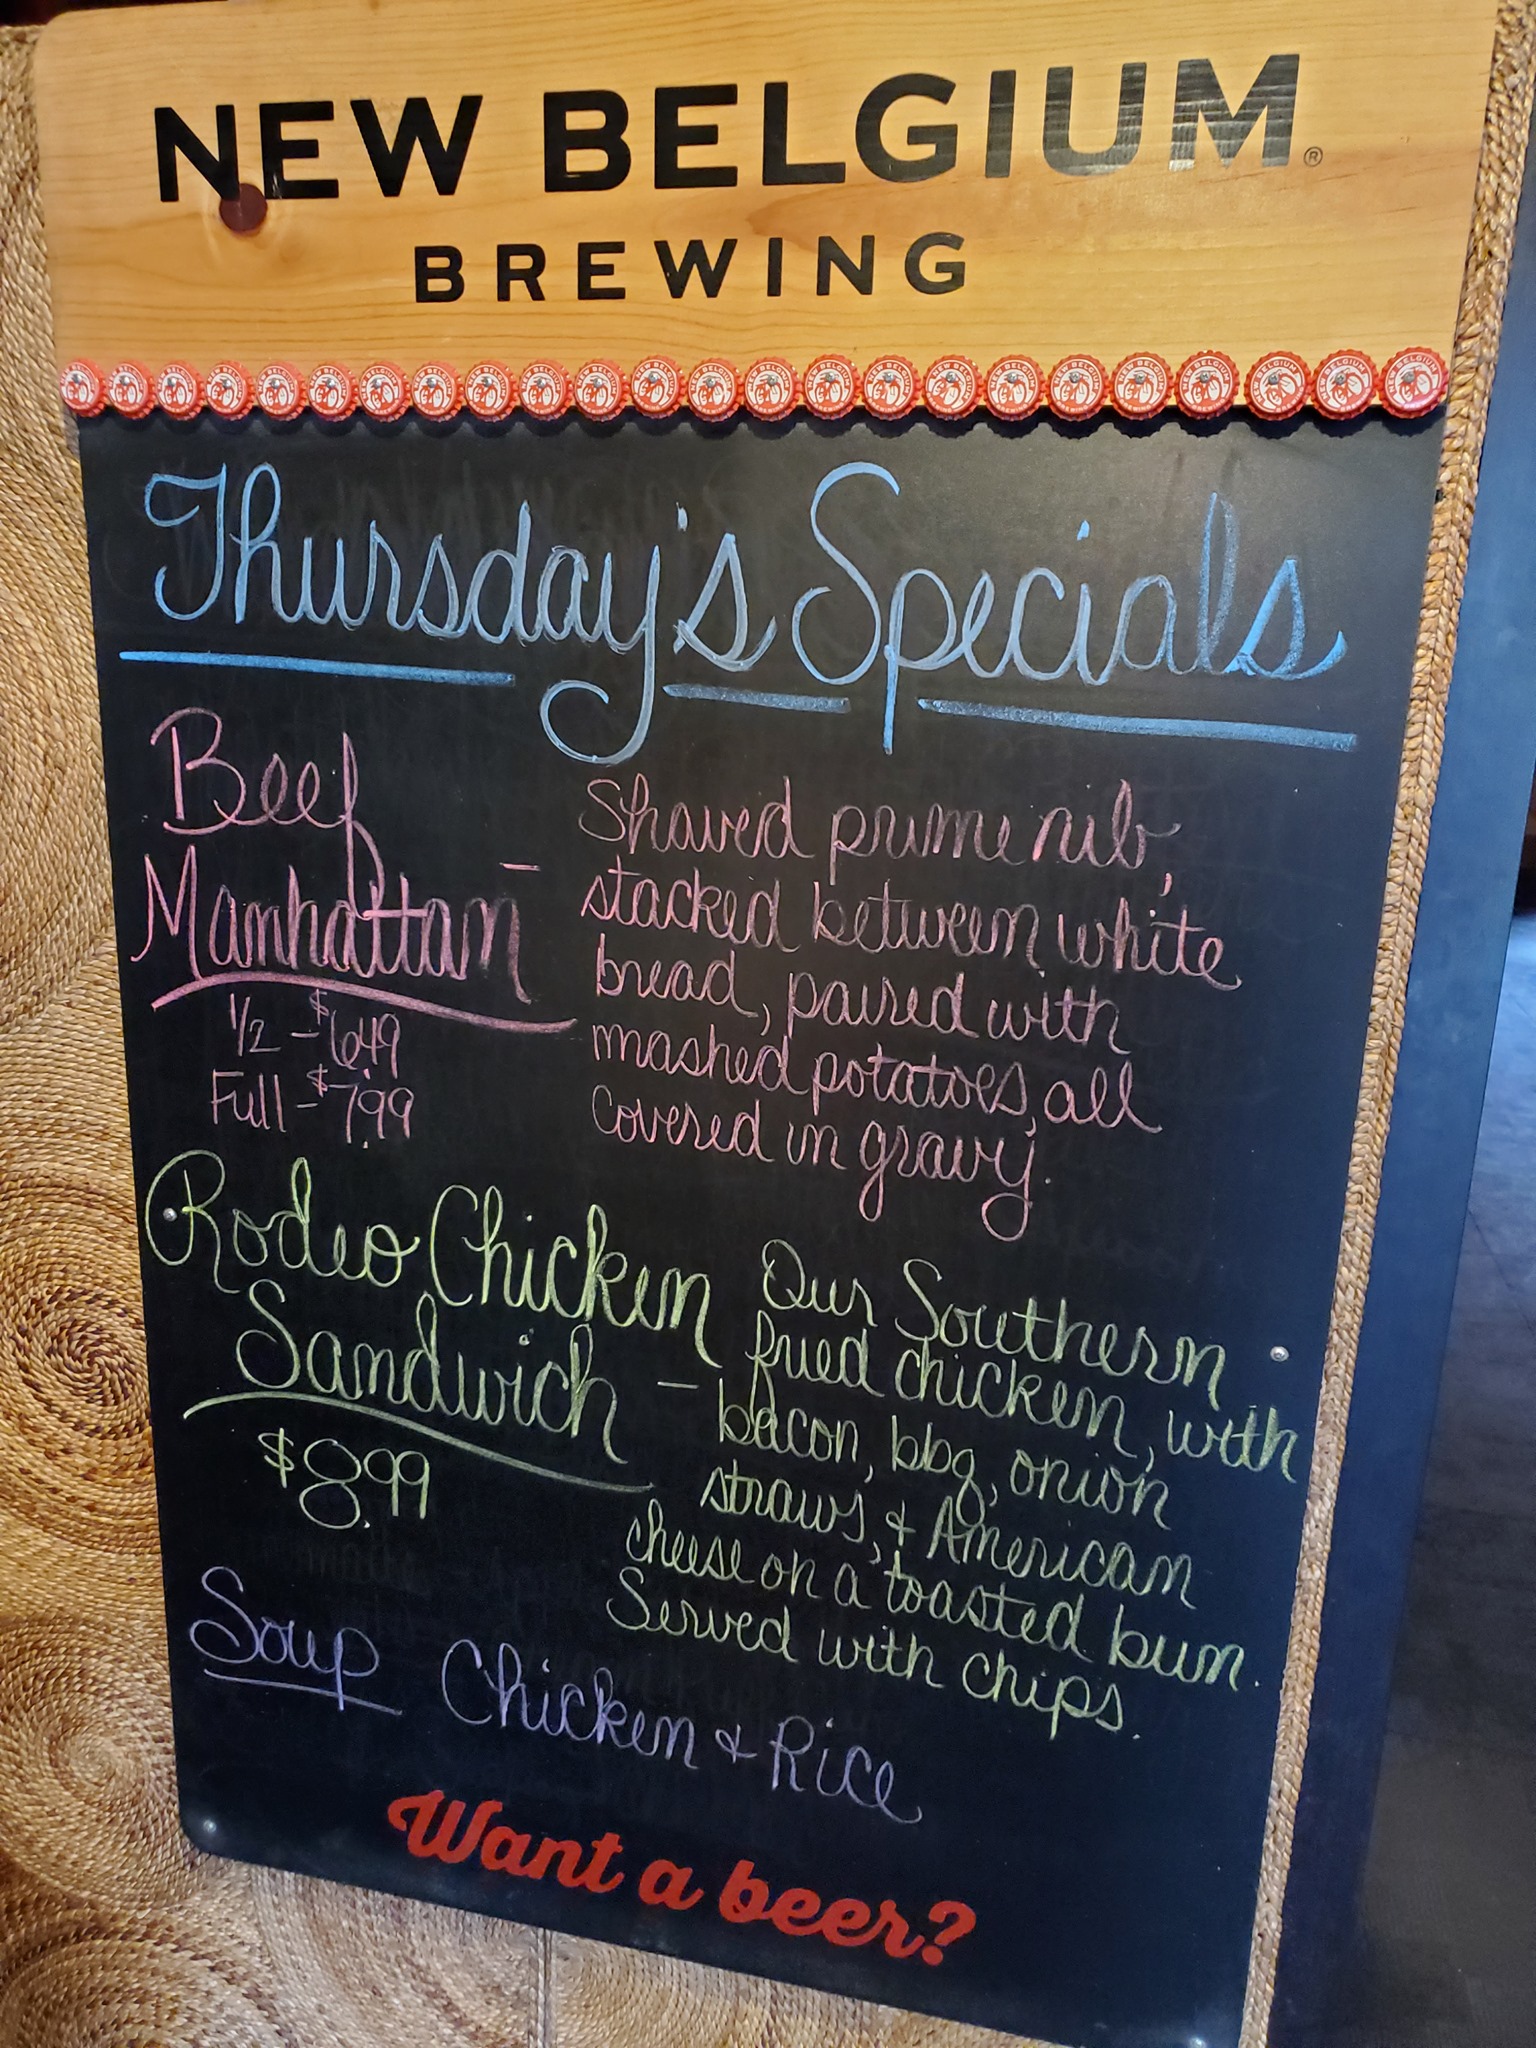 NEW BELGIUM®
BREWING
Thursday's Specials
Beef
Manhattan -
1/2 - $6.49
Full - $7.99
Shaved prime rib,
stacked between white
bread, paired with
mashed potatoes, all
covered in gravy.
Rodeo Chicken
Sandwich -
$8.99
Our Southern
fried chicken, with
bacon, bbq, onion
straws, & American
cheese on a toasted bun.
Served with chips.
Soup Chicken & Rice
Want a beer?